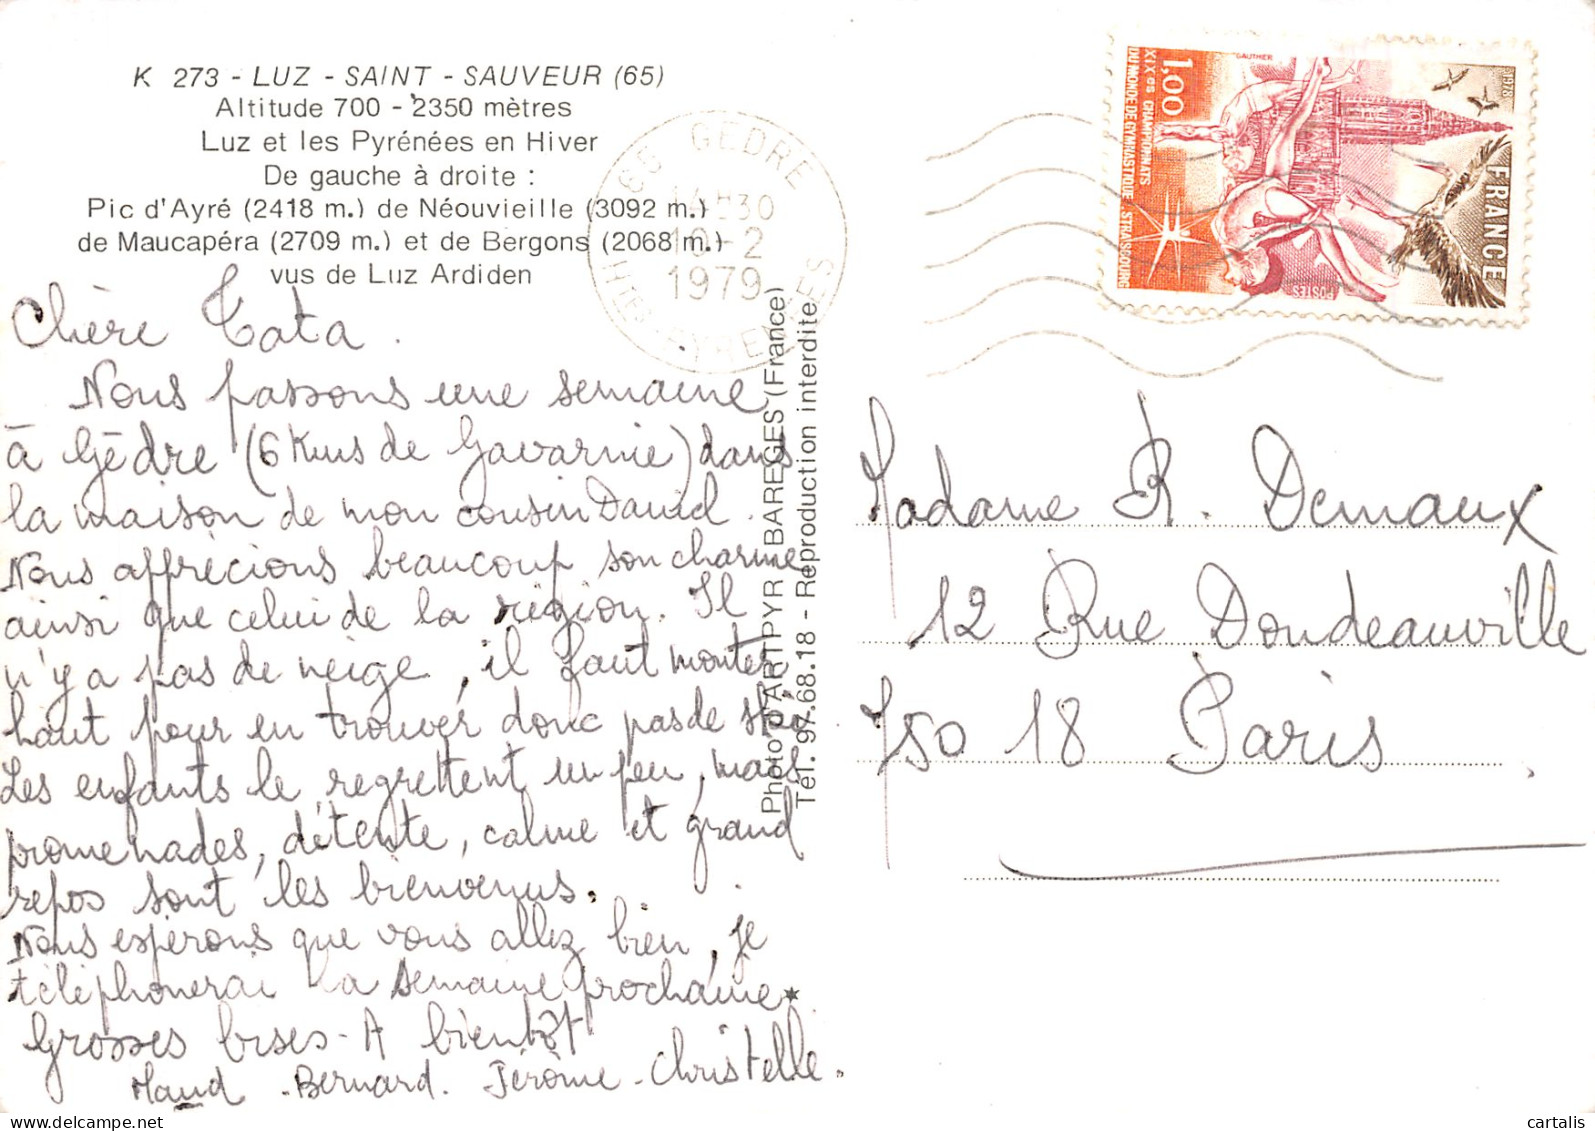 K 273 - LUZ - SAINT - SAUVEUR (65)
Altitude 700 - 2350 mètres
Luz et les Pyrénées en Hiver
De gauche à droite :
Pic d'Ayré (2418 m.) de Néouvieille (3092 m.)
de Maucapéra (2709 m.) et de Bergons (2068 m.)
vus de Luz Ardiden
Chère Tata.
Nous passons une semaine
à Gèdre (6 Kms de Gavarnie) dans
la maison de mon cousin David.
Nous apprécions beaucoup son charme
ainsi que celui de la région. Il
n'y a pas de neige, il faut monter
haut pour en trouver donc pas de ski
Les enfants le regrettent un peu, mais
promenades, détente, calme et grand
repos sont les bienvenus.
Nous espérons que vous allez bien, je
téléphonerai la semaine prochaine.
Grosses bises - A bientôt
Maud - Bernard. Jérôme - Christelle.
Photo D'ARTI PYR BAREGES (France)
Tél. 97.68.18 - Reproduction interdite
65 GEDRE
14H30
10-2
1979
HTES PYRENEES
FRANCE
1978
POSTES
GAUTHIER
1,00
XIXes CHAMPIONNATS
DU MONDE DE GYMNASTIQUE STRASBOURG
Madame R. Demaux
12 Rue Doudeauville
750 18 Paris
cartalis